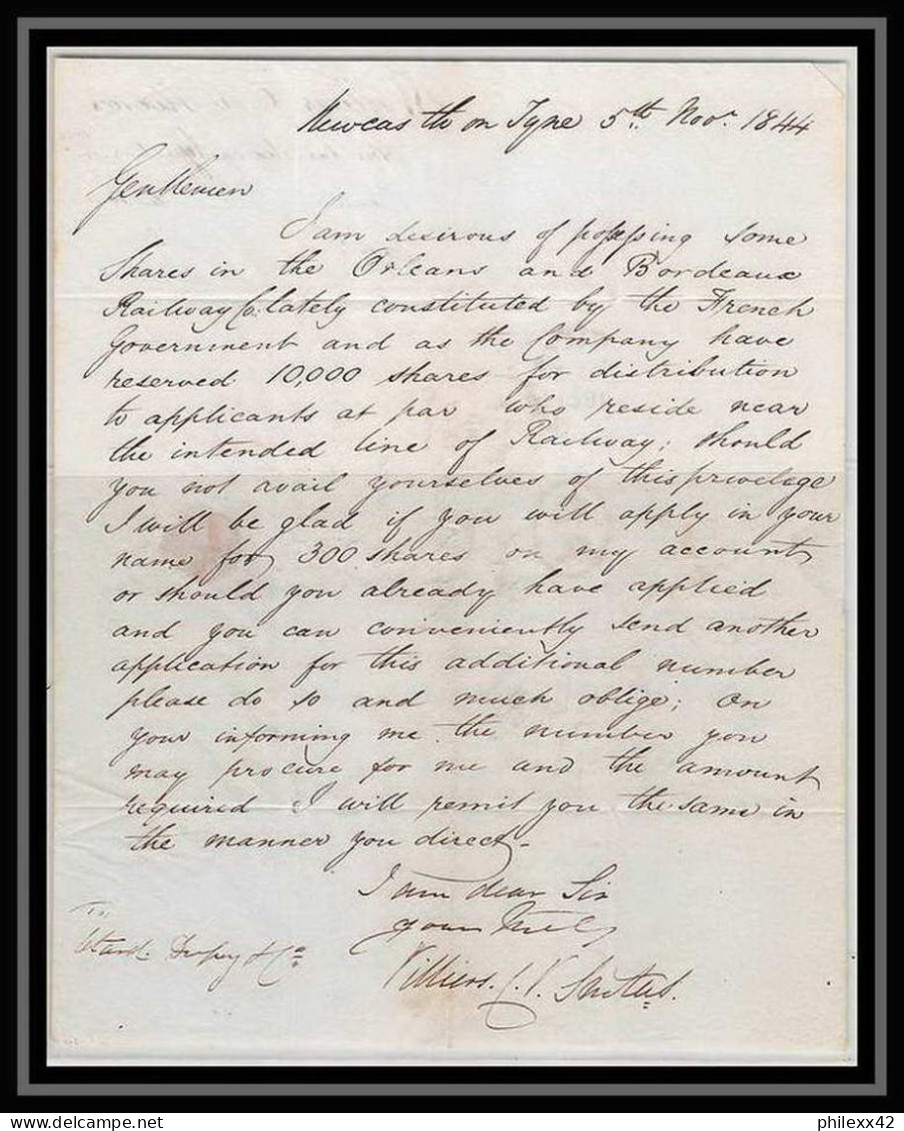 Newcastle on Tyne 5th Novr 1844
Gentlemen
I am desirous of possessing some
Shares in the Orleans and Bordeaux
Railway Co. lately constituted by the French
Government and as the Company have
reserved 10,000 shares for distribution
to applicants at par who reside near
the intended line of Railway; should
you not avail yourselves of this privelege
I will be glad if you will apply in your
name for 300 shares on my account
or should you already have applied
and you can conveniently send another
application for this additional number
please do so and much oblige; On
your informing me the number you
may procure for me and the amount
required I will remit you the same in
the manner you direct.
I am dear Sir
Your
To
Otard Dupuy & Co.
Villiers C. V.
delcampe.net
philexx42